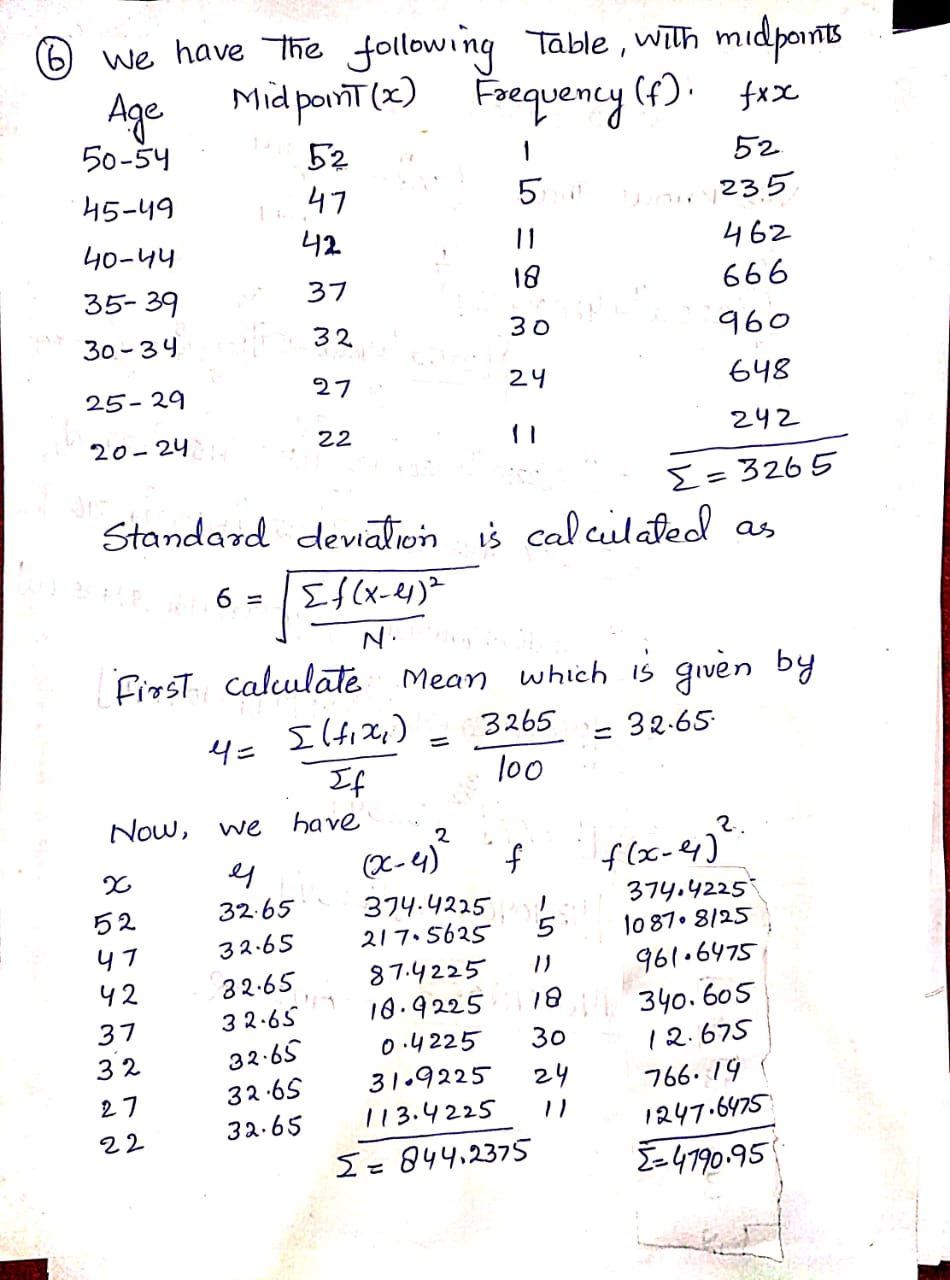 ⑥ We have the following Table, with midpoints
Age Midpoint(x) Frequency(f). f×x
50-54 52 1 52
45-49 47 5 235
40-44 42 11 462
35-39 37 18 666
30-34 32 30 960
25-29 27 24 648
20-24 22 11 242
Σ = 3265
Standard deviation is calculated as
6 = √Σf(x-μ)²/N.
First calculate Mean which is given by
μ = Σ(f₁x₁)/Σf = 3265/100 = 32.65.
Now, we have
x μ (x-μ)² f f(x-μ)².
52 32.65 374.4225 1 374.4225
47 32.65 217.5625 5 1087.8125
42 32.65 87.4225 11 961.6475
37 32.65 18.9225 18 340.605
32 32.65 0.4225 30 12.675
27 32.65 31.9225 24 766.14
22 32.65 113.4225 11 1247.6475
Σ = 844.2375 Σ=4790.95